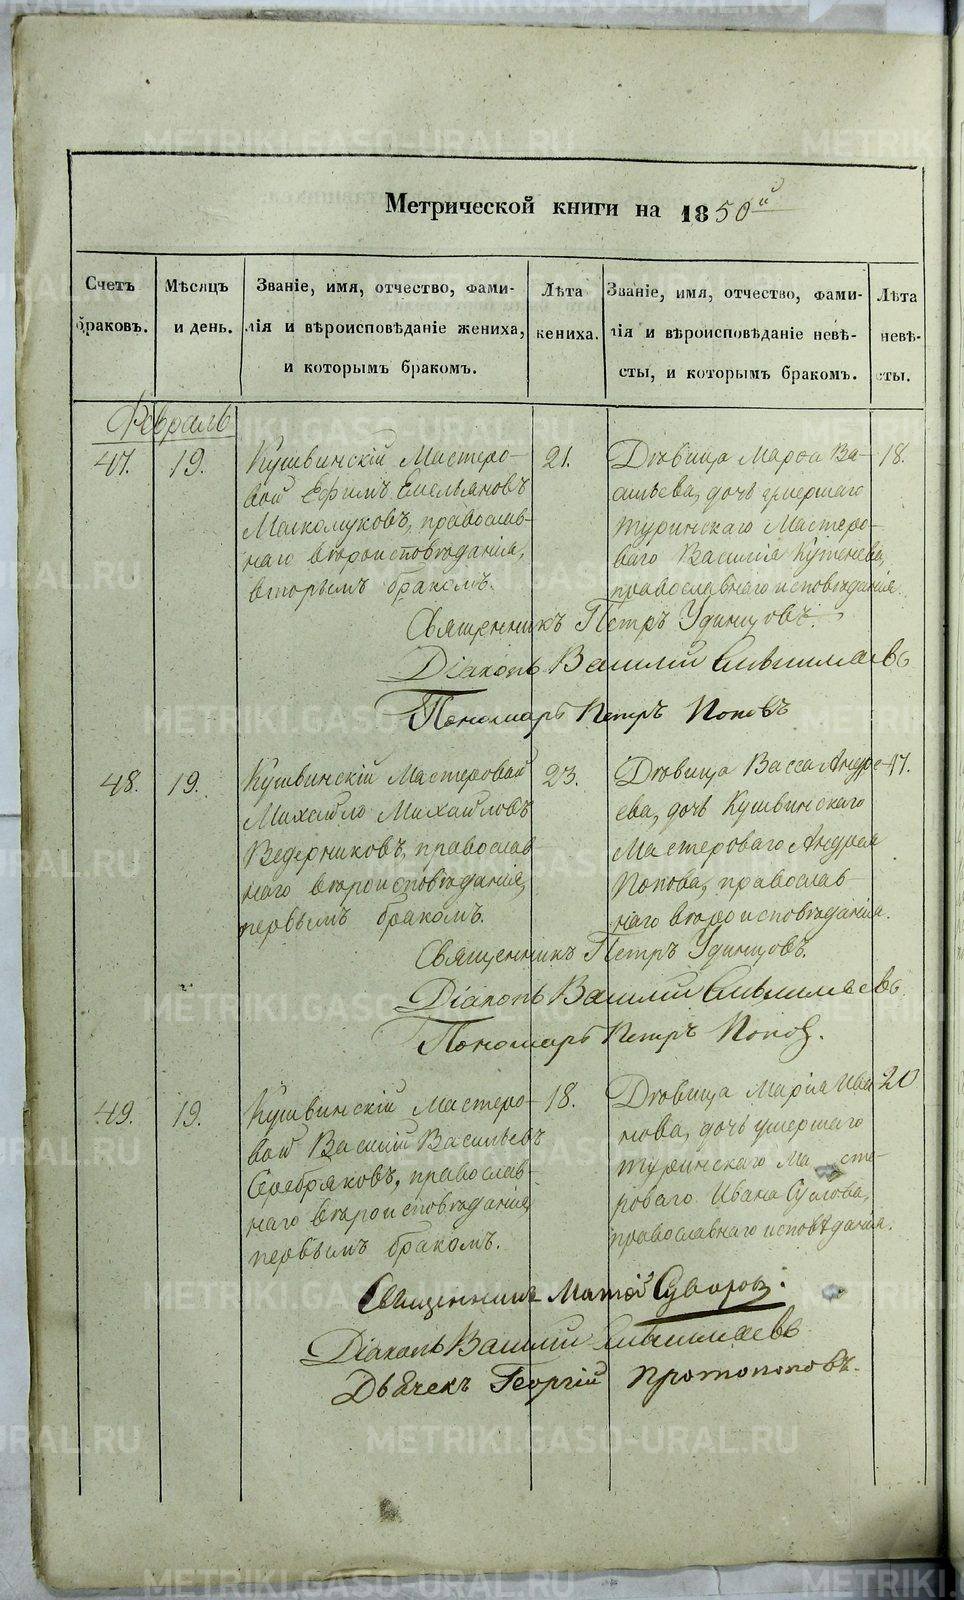 Метрической книги на 1850й
Счетъ браковъ.
Мѣсяцъ и день.
Званіе, имя, отчество, фами-
лія и вѣроисповѣданіе жениха,
и которымъ бракомъ.
Лѣта жениха.
Званіе, имя, отчество, фами-
лія и вѣроисповѣданіе невѣ-
сты, и которымъ бракомъ.
Лѣта невѣ-
сты.
Февраль
47. 19.
Кушвинскій Мастеро-
вой Ефимъ Емельяновъ
православ-
наго вѣроисповѣданія,
вторымъ бракомъ.
21.
Дѣвица Марѳа Ва-
сильева, дочь умершаго
туринскаго Мастеро-
ваго Василія
православнаго исповѣданія.
18.
Священникъ Петръ Удинцовъ.
Діаконъ Василий
Пономарь Петръ Поповъ
48. 19.
Кушвинскій Мастеровой
Михайло Михайловъ
Ведерниковъ, православ
наго вѣроисповѣданія,
первымъ бракомъ.
23.
Дѣвица Васса Андре-
ева, дочь Кушвинскаго
Мастероваго Андрея
Попова, православ
наго вѣроисповѣданія.
17.
Священникъ Петръ Удинцовъ.
Діаконъ Василий
Пономарь Петръ Попов.
49. 19.
Кушвинскій Мастеро-
вой Василій Васильевъ
Серебряковъ, православ-
наго вѣроисповѣданія
первымъ бракомъ.
18.
Дѣвица Марія Ива
нова, дочь умершаго
туринскаго Масте-
роваго Ивана Суслова,
православнаго исповѣданія.
20
Священникъ Матѳій Суворов.
Діаконъ Василий
Дьячекъ Георгій Протопоповъ.
METRIKI.GASO-URAL.RU